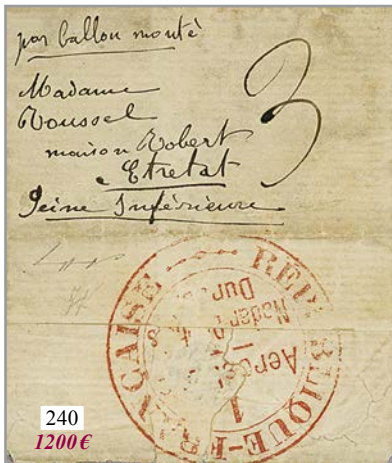 par ballon monté
3
Madame
Roussel
maison Robert
Etretat
Seine Inférieure
RÉPUBLIQUE-FRANÇAISE
Nadar
Du
Aeros
1
240
1200 €